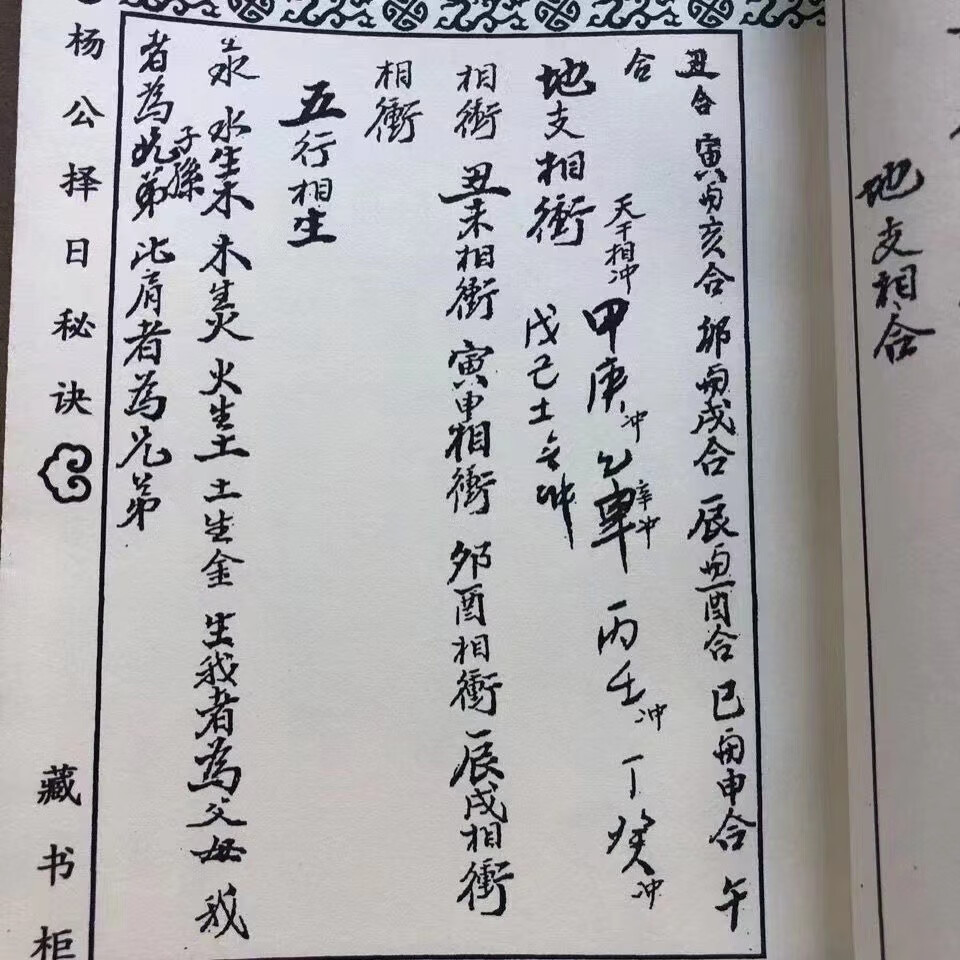 地支相合
丑合 寅与亥合 卯与戌合 辰与酉合 巳与申合 午
合
天干相冲 甲庚冲 乙辛冲 辛 丙壬冲 丁癸冲
地支相衝 戊己土无冲
相衝 丑未相衝 寅申相衝 卯酉相衝 辰戌相衝
相衝
五行相生
生水 水生木 木生火 火生土 土生金 生我者為父母 我
子孫
者為兄弟 比肩者為兄弟
杨公择日秘诀
藏书柜